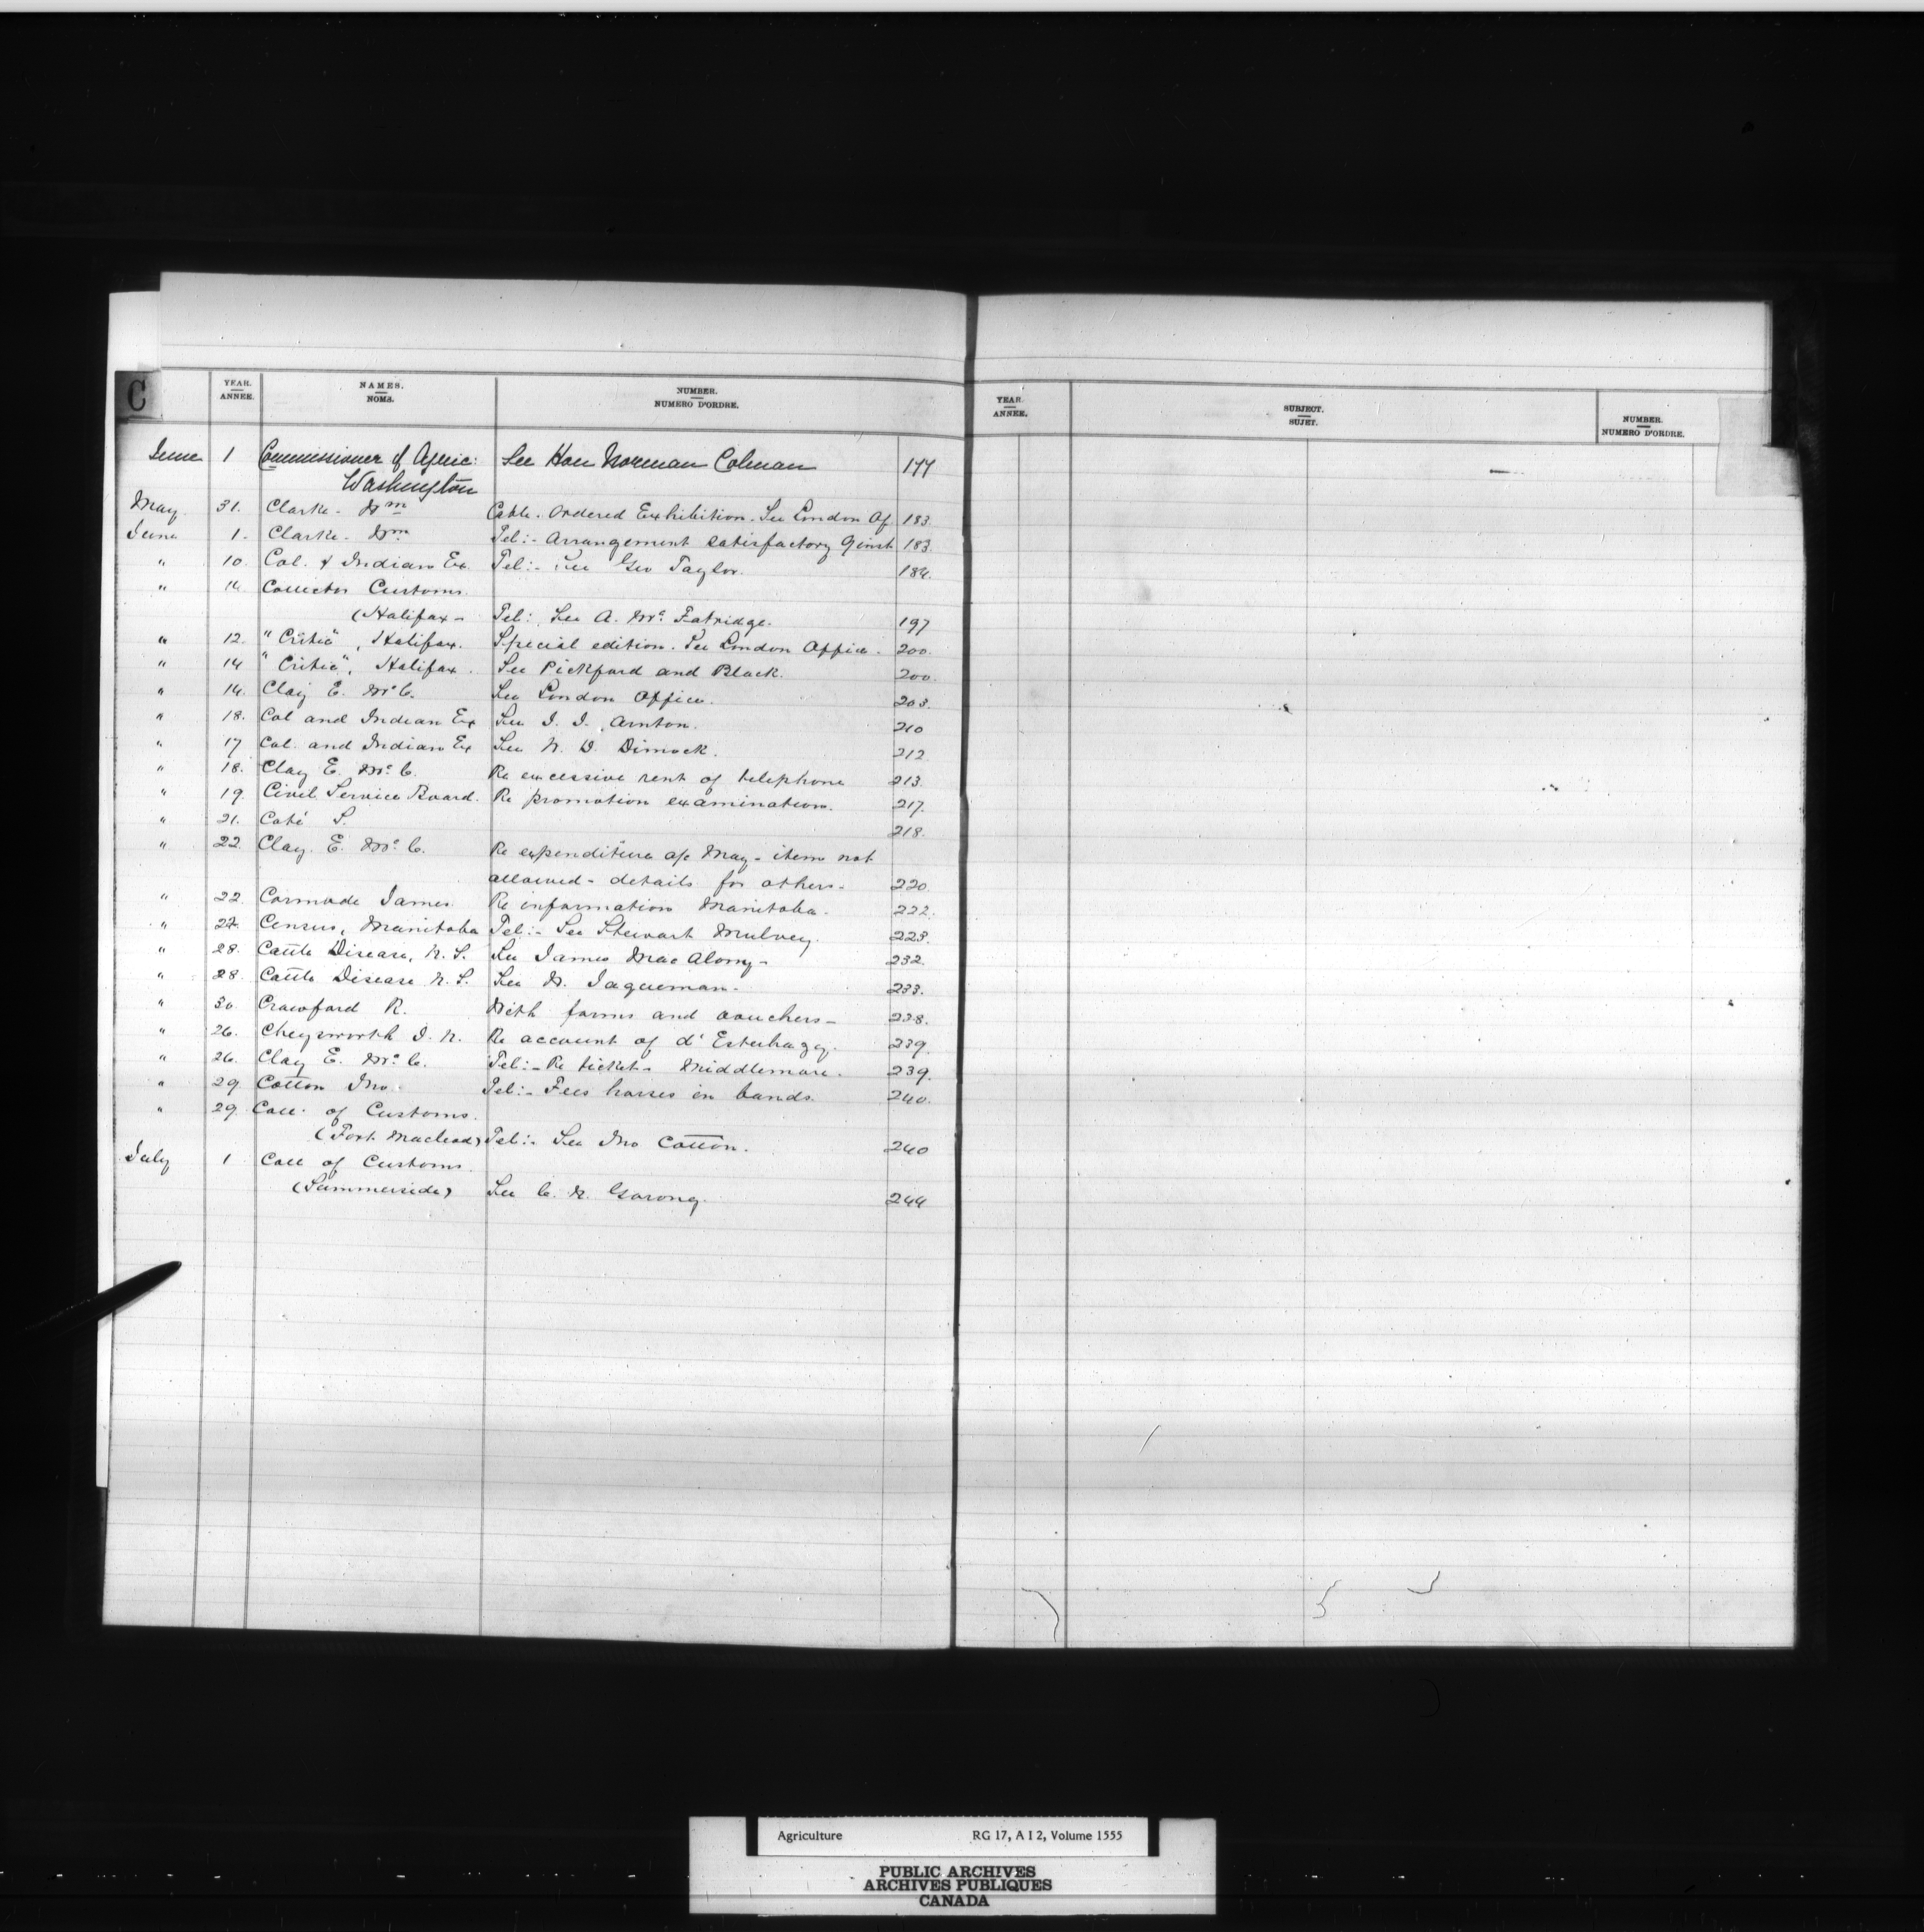 C
YEAR. ANNEE. NAMES. NOMS. NUMBER. NUMERO D'ORDRE.
June 1 Commissioner of Agric: See Hon Norman Colman 177
Washington
May 31. Clarke - Wm Cable. Ordered Exhibition. See London Of. 183
June 1. Clarke - Wm Tel:- Arrangement satisfactory 9 inst 183.
" 10. Col. & Indian Ex. Tel:- See Geo Taylor. 184.
" 14 Collector Customs.
(Halifax - Tel: See A. Mc. Fatridge. 197
" 12. "Critic", Halifax. Special edition. See London Office. 200.
" 14 "Critic", Halifax. See Pickford and Black. 200.
" 14. Clay E. McC. See London Office. 203.
" 18. Col and Indian Ex See I. I. Arnton. 210
" 17 Col. and Indian Ex See N. D. Dimock. 212
" 18. Clay E. McC. Re excessive rent of telephone 213.
" 19. Civil Service Board. Re promotion examination. 217.
" 21. Coté S. 218.
" 22. Clay. E. McC. Re expenditure a/c May - items not
allowed - details for others - 220.
" 22. Cormode James. Re information Manitoba. 222.
" 22. Census, Manitoba Tel:- See Stewart Mulvey. 223.
" 28. Cattle Disease, N.S. See James Mac - 232.
" 28. Cattle Disease N.S. See W. Jaqueman - 233.
" 30. Crawford R. With forms and vouchers - 238.
" 26. I. N. Re account of d'Esterhazy. 239.
" 26. Clay E. McC. Tel:- Re tickets Middlemore. 239.
" 29 Cotton Jno. Tel:- Fees horses in bands. 240.
" 29. Coll. of Customs.
(Fort Macleod) Tel:- See Jno Cotton. 240
July 1 Coll of Customs.
(Summerside) See C. N. 244
YEAR. ANNEE. SUBJECT. SUJET. NUMBER. NUMERO D'ORDRE.
Agriculture RG 17, A I 2, Volume 1555
PUBLIC ARCHIVES
ARCHIVES PUBLIQUES
CANADA